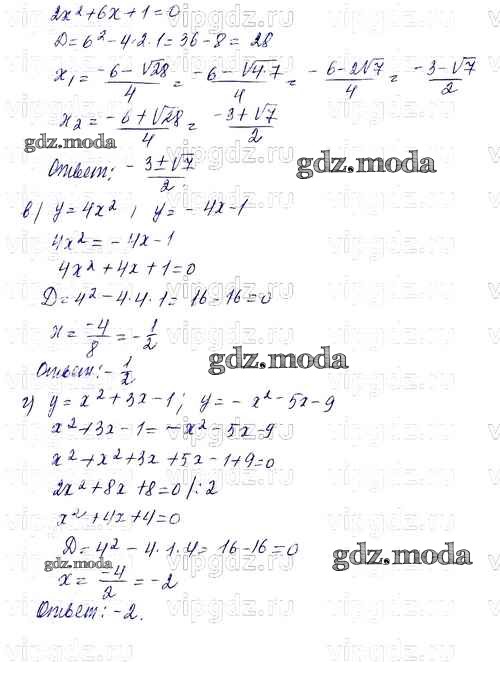 2x²+6x+1=0
D=6²-4·2·1=36-8=28
x₁=(-6-√28)/4=(-6-√4·7)/4=(-6-2√7)/4=(-3-√7)/2
x₂=(-6+√28)/4=(-3+√7)/2
gdz.moda
gdz.moda
Ответ: (-3±√7)/2.
в) y=4x², y=-4x-1
4x²=-4x-1
4x²+4x+1=0
D=4²-4·4·1=16-16=0
x=-4/8=-1/2
gdz.moda
Ответ:-1/2
г) y=x²+3x-1; y=-x²-5x-9
x²+3x-1=-x²-5x-9
x²+x²+3x+5x-1+9=0
2x²+8x+8=0/:2
x²+4x+4=0
D=4²-4·1·4=16-16=0
gdz.moda
gdz.moda
x=-4/2=-2
Ответ:-2.
vipgdz.ru